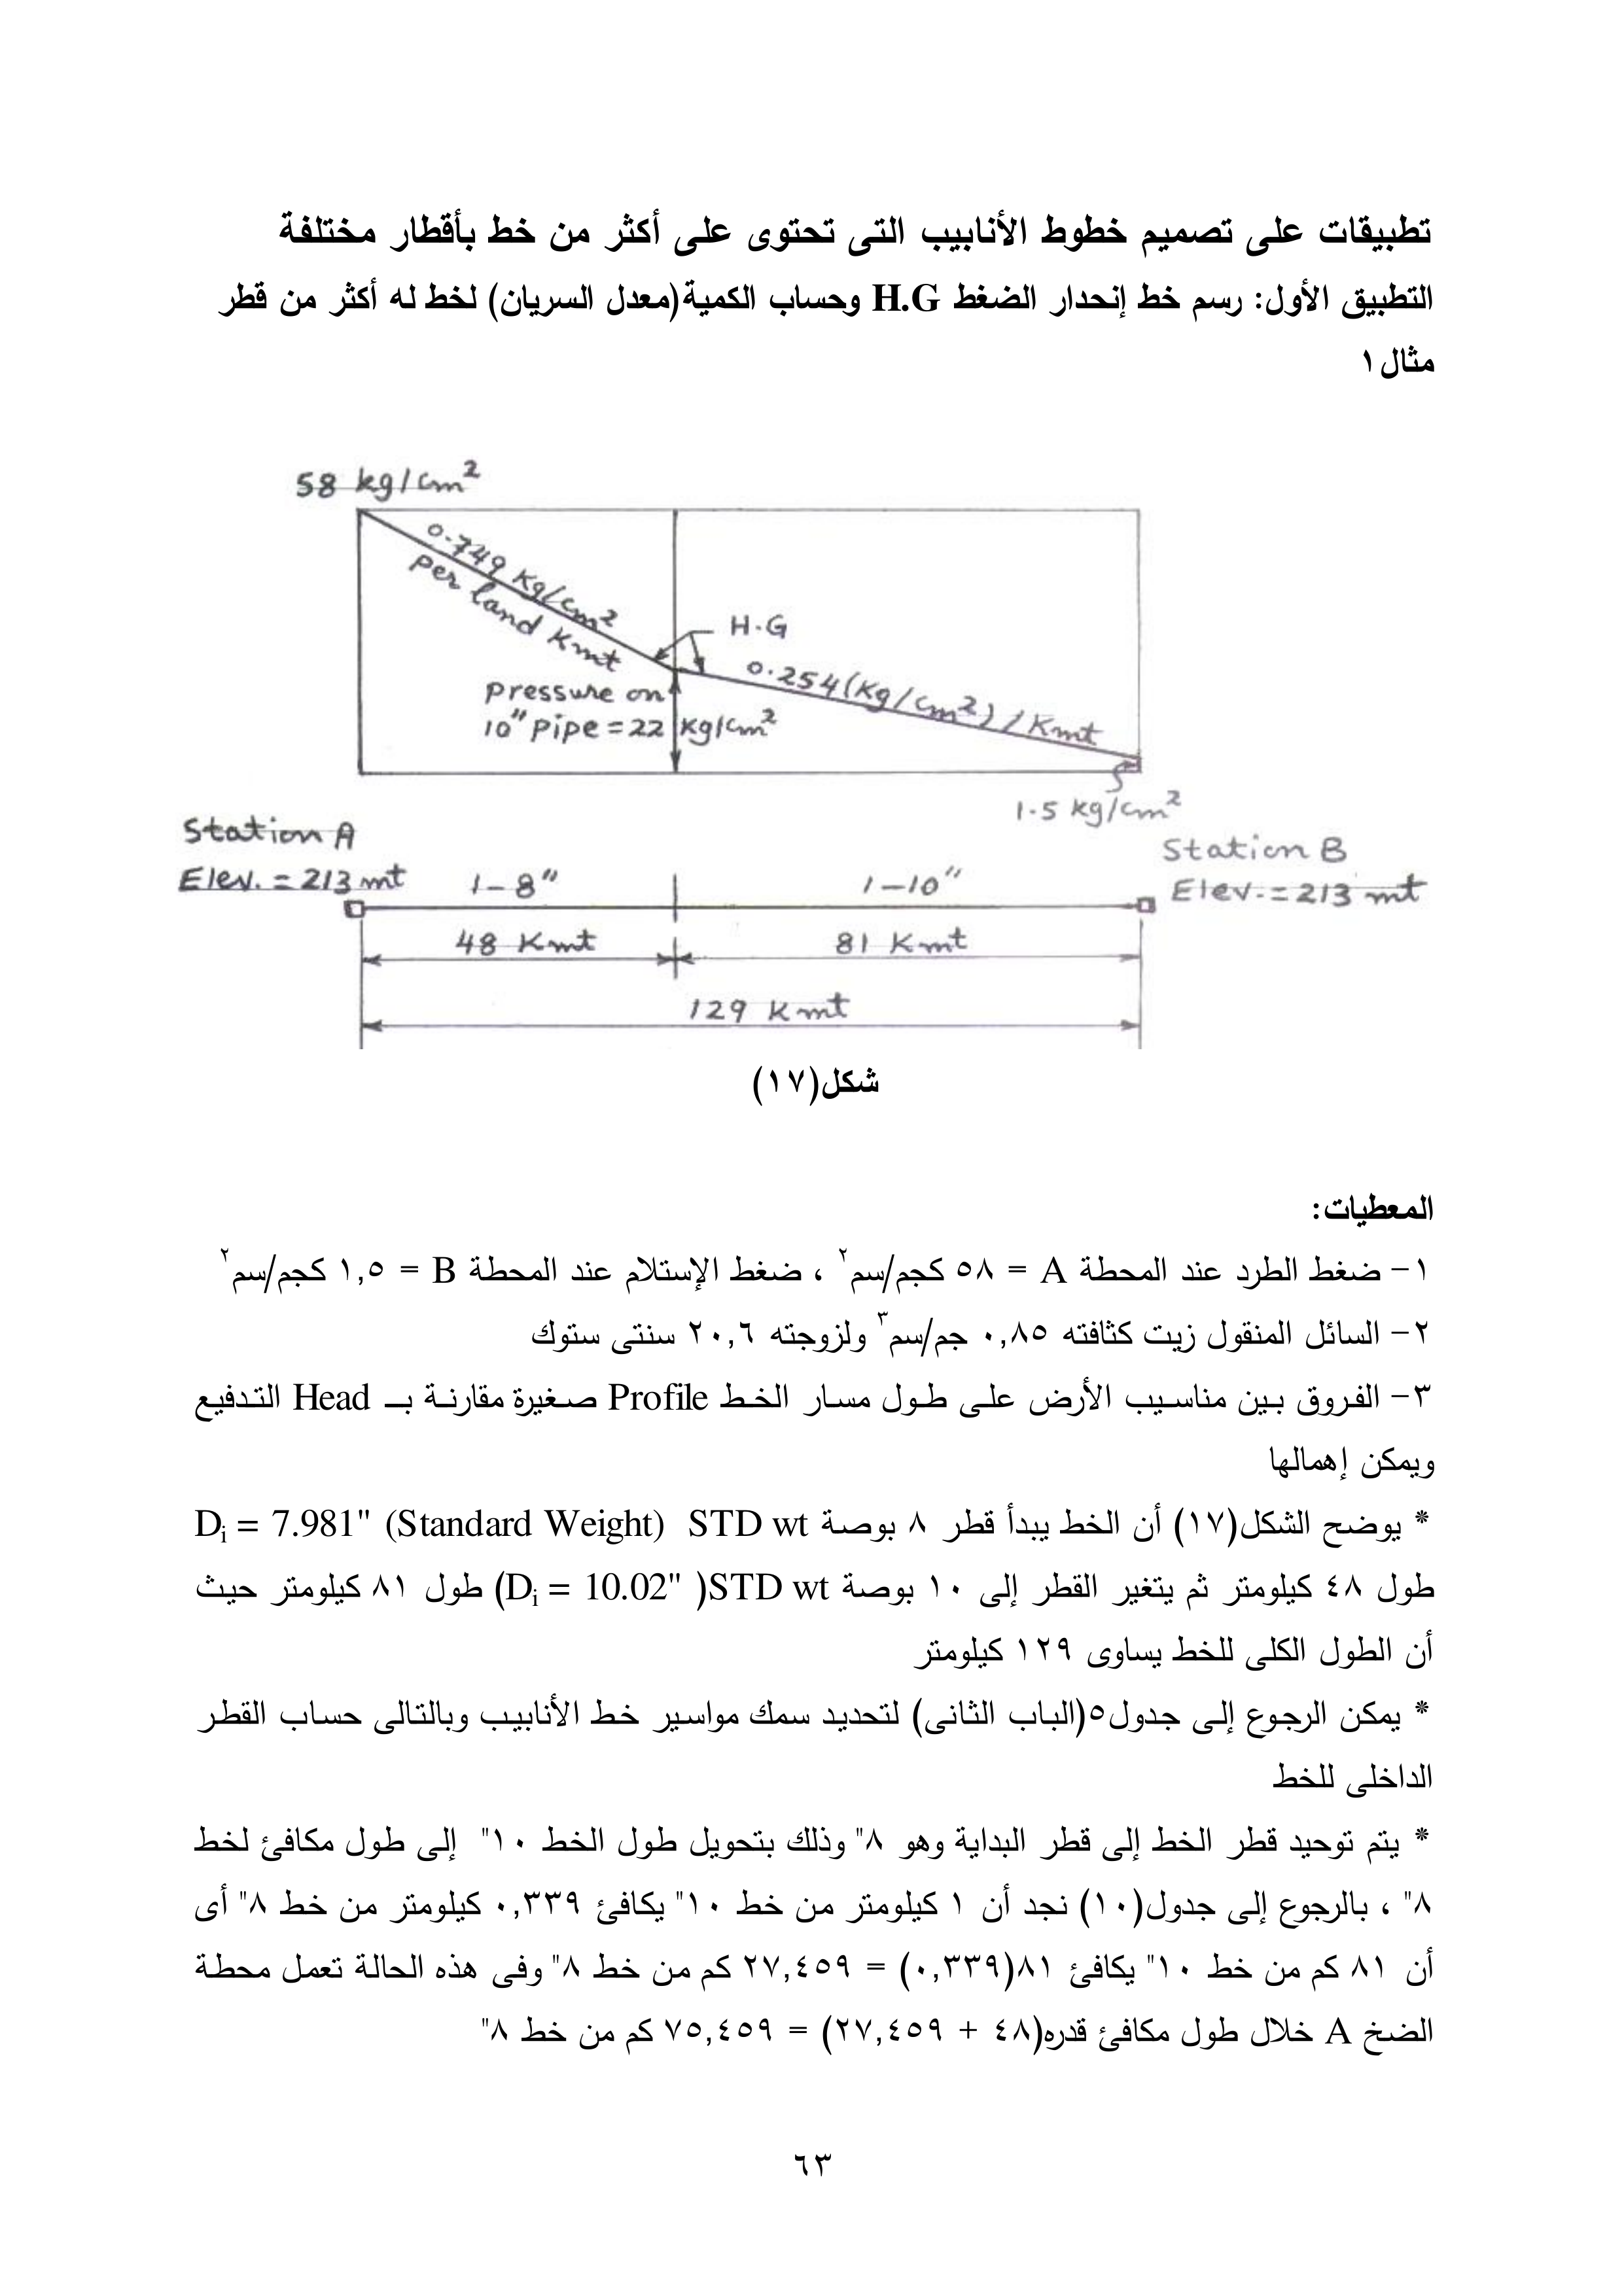 تطبيقات على تصميم خطوط الأنابيب التى تحتوى على أكثر من خط بأقطار مختلفة
التطبيق الأول: رسم خط إنحدار الضغط H.G وحساب الكمية(معدل السريان) لخط له أكثر من قطر
مثال ١
58 kg/cm²
0.749 kg/cm²
per land Kmt
H.G
0.254(kg/cm²)/Kmt
pressure on
10" pipe = 22 kg/cm²
1.5 kg/cm²
Station A
Elev. = 213 mt
1-8"
1-10"
Station B
Elev. = 213 mt
48 Kmt
81 Kmt
129 Kmt
شكل(١٧)
المعطيات:
١- ضغط الطرد عند المحطة A = ٥٨ كجم/سم٢ ، ضغط الإستلام عند المحطة B = ١,٥ كجم/سم٢
٢- السائل المنقول زيت كثافته ٠,٨٥ جم/سم٣ ولزوجته ٢٠,٦ سنتى ستوك
٣- الفروق بين مناسيب الأرض على طول مسار الخط Profile صغيرة مقارنة بـ Head التدفيع
ويمكن إهمالها
* يوضح الشكل(١٧) أن الخط يبدأ قطر ٨ بوصة Di = 7.981" (Standard Weight) STD wt
طول ٤٨ كيلومتر ثم يتغير القطر إلى ١٠ بوصة STD wt( Di = 10.02") طول ٨١ كيلومتر حيث
أن الطول الكلى للخط يساوى ١٢٩ كيلومتر
* يمكن الرجوع إلى جدول٥(الباب الثانى) لتحديد سمك مواسير خط الأنابيب وبالتالى حساب القطر
الداخلى للخط
* يتم توحيد قطر الخط إلى قطر البداية وهو ٨" وذلك بتحويل طول الخط ١٠" إلى طول مكافئ لخط
٨" ، بالرجوع إلى جدول(١٠) نجد أن ١ كيلومتر من خط ١٠" يكافئ ٠,٣٣٩ كيلومتر من خط ٨" أى
أن ٨١ كم من خط ١٠" يكافئ ٨١(٠,٣٣٩) = ٢٧,٤٥٩ كم من خط ٨" وفى هذه الحالة تعمل محطة
الضخ A خلال طول مكافئ قدره(٤٨ + ٢٧,٤٥٩) = ٧٥,٤٥٩ كم من خط ٨"
٦٣